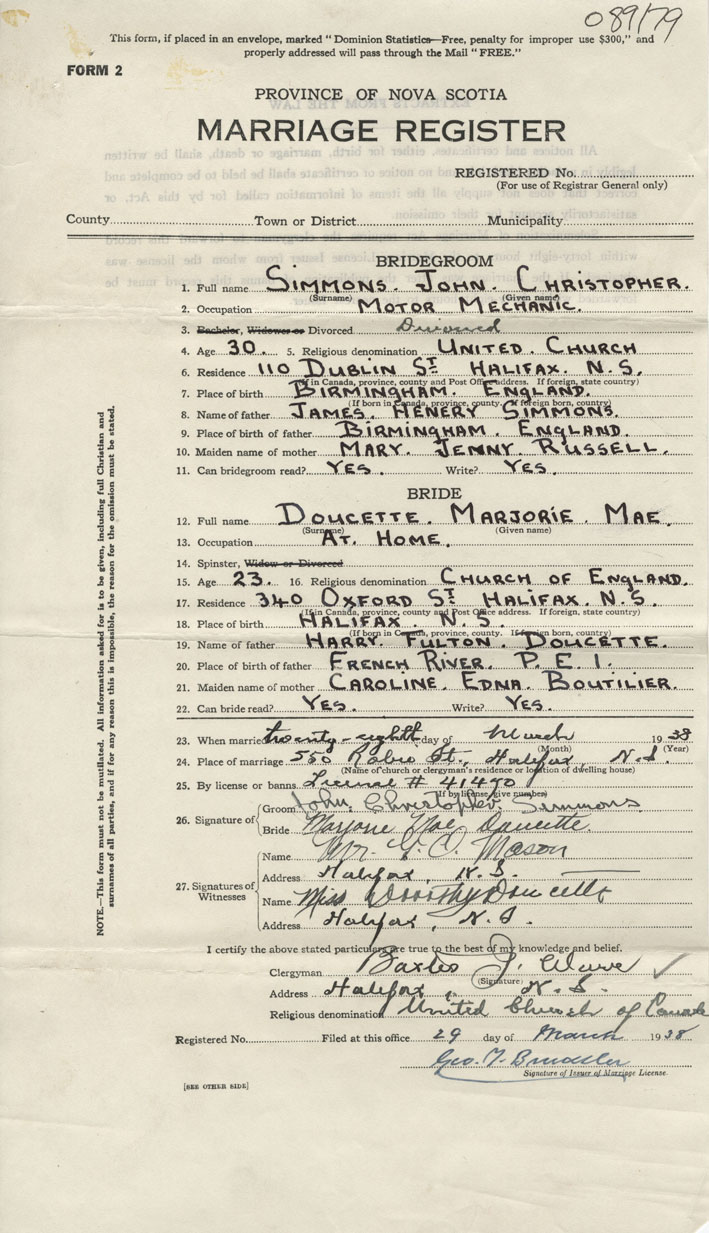 089/79
This form, if placed in an envelope, marked "Dominion Statistics—Free, penalty for improper use $300," and
properly addressed will pass through the Mail "FREE."
FORM 2
PROVINCE OF NOVA SCOTIA
MARRIAGE REGISTER
REGISTERED No.
(For use of Registrar General only)
County Town or District Municipality
BRIDEGROOM
1. Full name SIMMONS. JOHN. CHRISTOPHER.
(Surname) (Given name)
2. Occupation MOTOR MECHANIC.
3. Bachelor, Widower or Divorced Divorced
4. Age 30. 5. Religious denomination UNITED. CHURCH
6. Residence 110 DUBLIN ST. HALIFAX. N.S.
(If in Canada, province, county and Post Office address. If foreign, state country)
7. Place of birth BIRMINGHAM. ENGLAND.
(If born in Canada, province, county. If foreign born, country)
8. Name of father JAMES. HENERY SIMMONS.
9. Place of birth of father BIRMINGHAM. ENGLAND.
10. Maiden name of mother MARY. JENNY. RUSSELL.
11. Can bridegroom read? YES. Write? YES.
BRIDE
12. Full name DOUCETTE. MARJORIE. MAE.
(Surname) (Given name)
13. Occupation AT. HOME.
14. Spinster, Widow or Divorced
15. Age 23. 16. Religious denomination CHURCH OF ENGLAND.
17. Residence 340 OXFORD ST. HALIFAX. N.S.
(If in Canada, province, county and Post Office address. If foreign, state country)
18. Place of birth HALIFAX. N.S.
(If born in Canada, province, county. If foreign born, country)
19. Name of father HARRY. FULTON. DOUCETTE.
20. Place of birth of father FRENCH RIVER. P.E.I.
21. Maiden name of mother CAROLINE. EDNA. BOUTILIER.
22. Can bride read? YES. Write? YES.
23. When married twenty-eighth day of March 1938
(Month) (Year)
24. Place of marriage 550 St., Halifax, N.S.
(Name of church or clergyman's residence or location of dwelling house)
25. By license or banns License # 41490
(If by license, give number)
26. Signature of Groom John Christopher Simmons
Bride Marjorie Mae Doucette
27. Signatures of Witnesses
Name Mr. Mason
Address Halifax, N.S.
Name Miss Dorothy Doucette
Address Halifax, N.S.
I certify the above stated particulars are true to the best of my knowledge and belief.
Clergyman
(Signature)
Address Halifax, N.S.
Religious denomination United Church of Canada
Registered No. Filed at this office 29 day of March 1938
Geo.
Signature of Issuer of Marriage License.
[SEE OTHER SIDE]
NOTE.—This form must not be mutilated. All information asked for is to be given, including full Christian and
surnames of all parties, and if for any reason this is impossible, the reason for the omission must be stated.